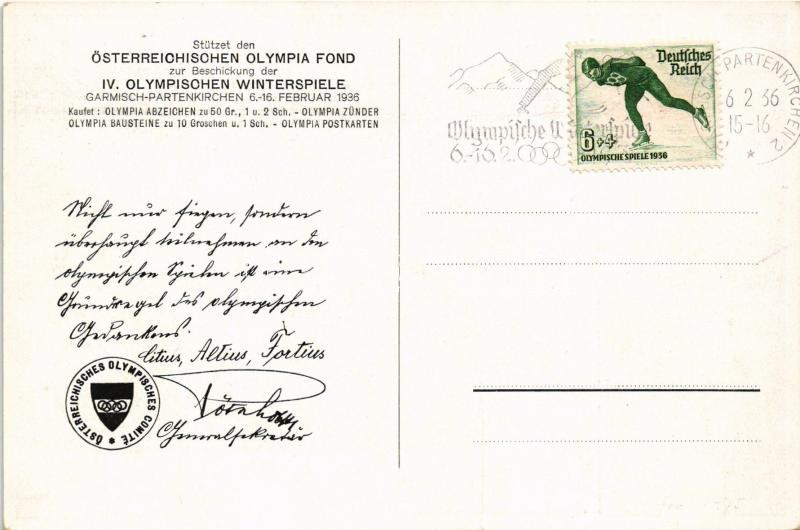 Stützet den
ÖSTERREICHISCHEN OLYMPIA FOND
zur Beschickung der
IV. OLYMPISCHEN WINTERSPIELE
GARMISCH-PARTENKIRCHEN 6.-16. FEBRUAR 1936
Kaufet : OLYMPIA ABZEICHEN zu 50 Gr., 1 u. 2 Sch. - OLYMPIA ZÜNDER
OLYMPIA BAUSTEINE zu 10 Groschen u. 1 Sch. - OLYMPIA POSTKARTEN
Nicht nur siegen, sondern
überhaupt teilnehmen an den
olympischen Spielen ist eine
Grundregel des olympischen
Gedankens.
Citius, Altius, Fortius
Generalsekretär
ÖSTERREICHISCHES OLYMPISCHES COMITÉ
Olympische
6.-16.2.
Deutsches
Reich
6+4
OLYMPISCHE SPIELE 1936
PARTENKIRCHEN 2
6 2 36
15-16